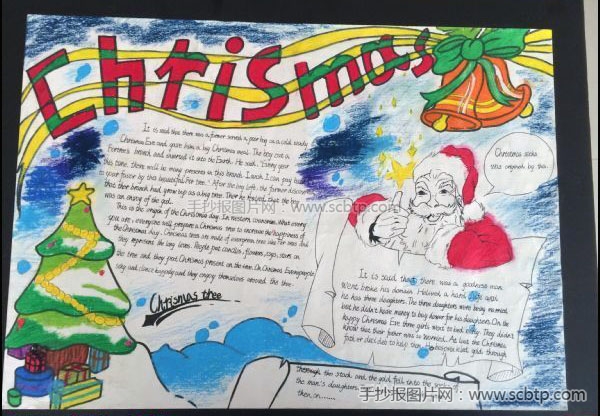 Christmas
It is said that there was a farmer served a poor boy on a cold
Christmas Eve and gave him a big Christmas meal. The boy cut a
branch and inserted it into the Earth. He said, "Every year
this time, there will be many presents on this branch. I wish I can pay back
to your favor by this beautiful Fir tree." After the boy left, the farmer
that the branch had grow up as a big tree. Then he that the boy
was an envoy of the god.
This is the origin of the Christmas day. In western countries, What every
you are, everyone will prepare a Christmas tree to increase the happiness of
the Christmas day. Christmas trees are made of evergreen tree like Fir and
they represent the long lives. People put candles, flowers, toys, stars on
the tree and they put Christmas present on the tree. On Christmas Eve, people
sing and dance happily and they enjoy themselves around the tree.
Christmas tree
Christmas socks
was original by this.
手抄报图片网：www.scbtp.com
It is said that there was a goodness man
Went broke his domain. He lived a hard life with
he has three daughters. The three daughters were being married
and he didn't have money to buy dower for his daughters. On the
happy Christmas Eve three girls went to bed early. They didn't
know that their father was so worried. At last the Christmas
father decided to help them. He drops with gold through
Thorough this stock and the gold fell into the
the man's daughters
then on......
手抄报图片网：www.scbtp.com